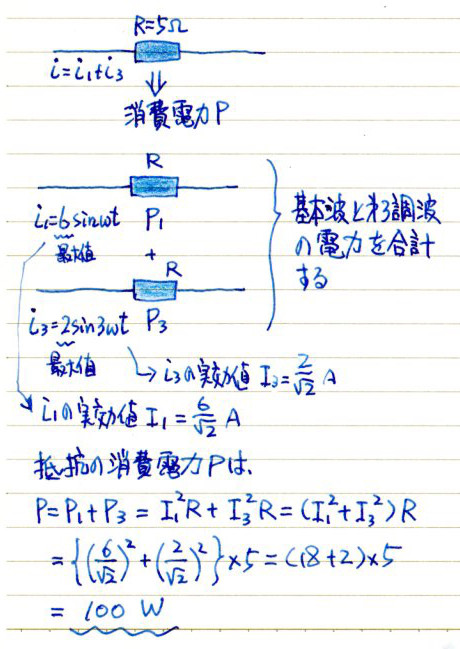 R=5Ω
i=i₁+i₃
⇓
消費電力P
R
i₁=6sinωt P₁
最大値
+
R
i₃=2sin3ωt P₃
最大値
基本波と第3調波
の電力を合計
する
→i₃の実効値 I₃=2/√2 A
i₁の実効値 I₁=6/√2 A
抵抗の消費電力Pは、
P=P₁+P₃=I₁²R+I₃²R=(I₁²+I₃²)R
={(6/√2)²+(2/√2)²}×5=(18+2)×5
=100 W